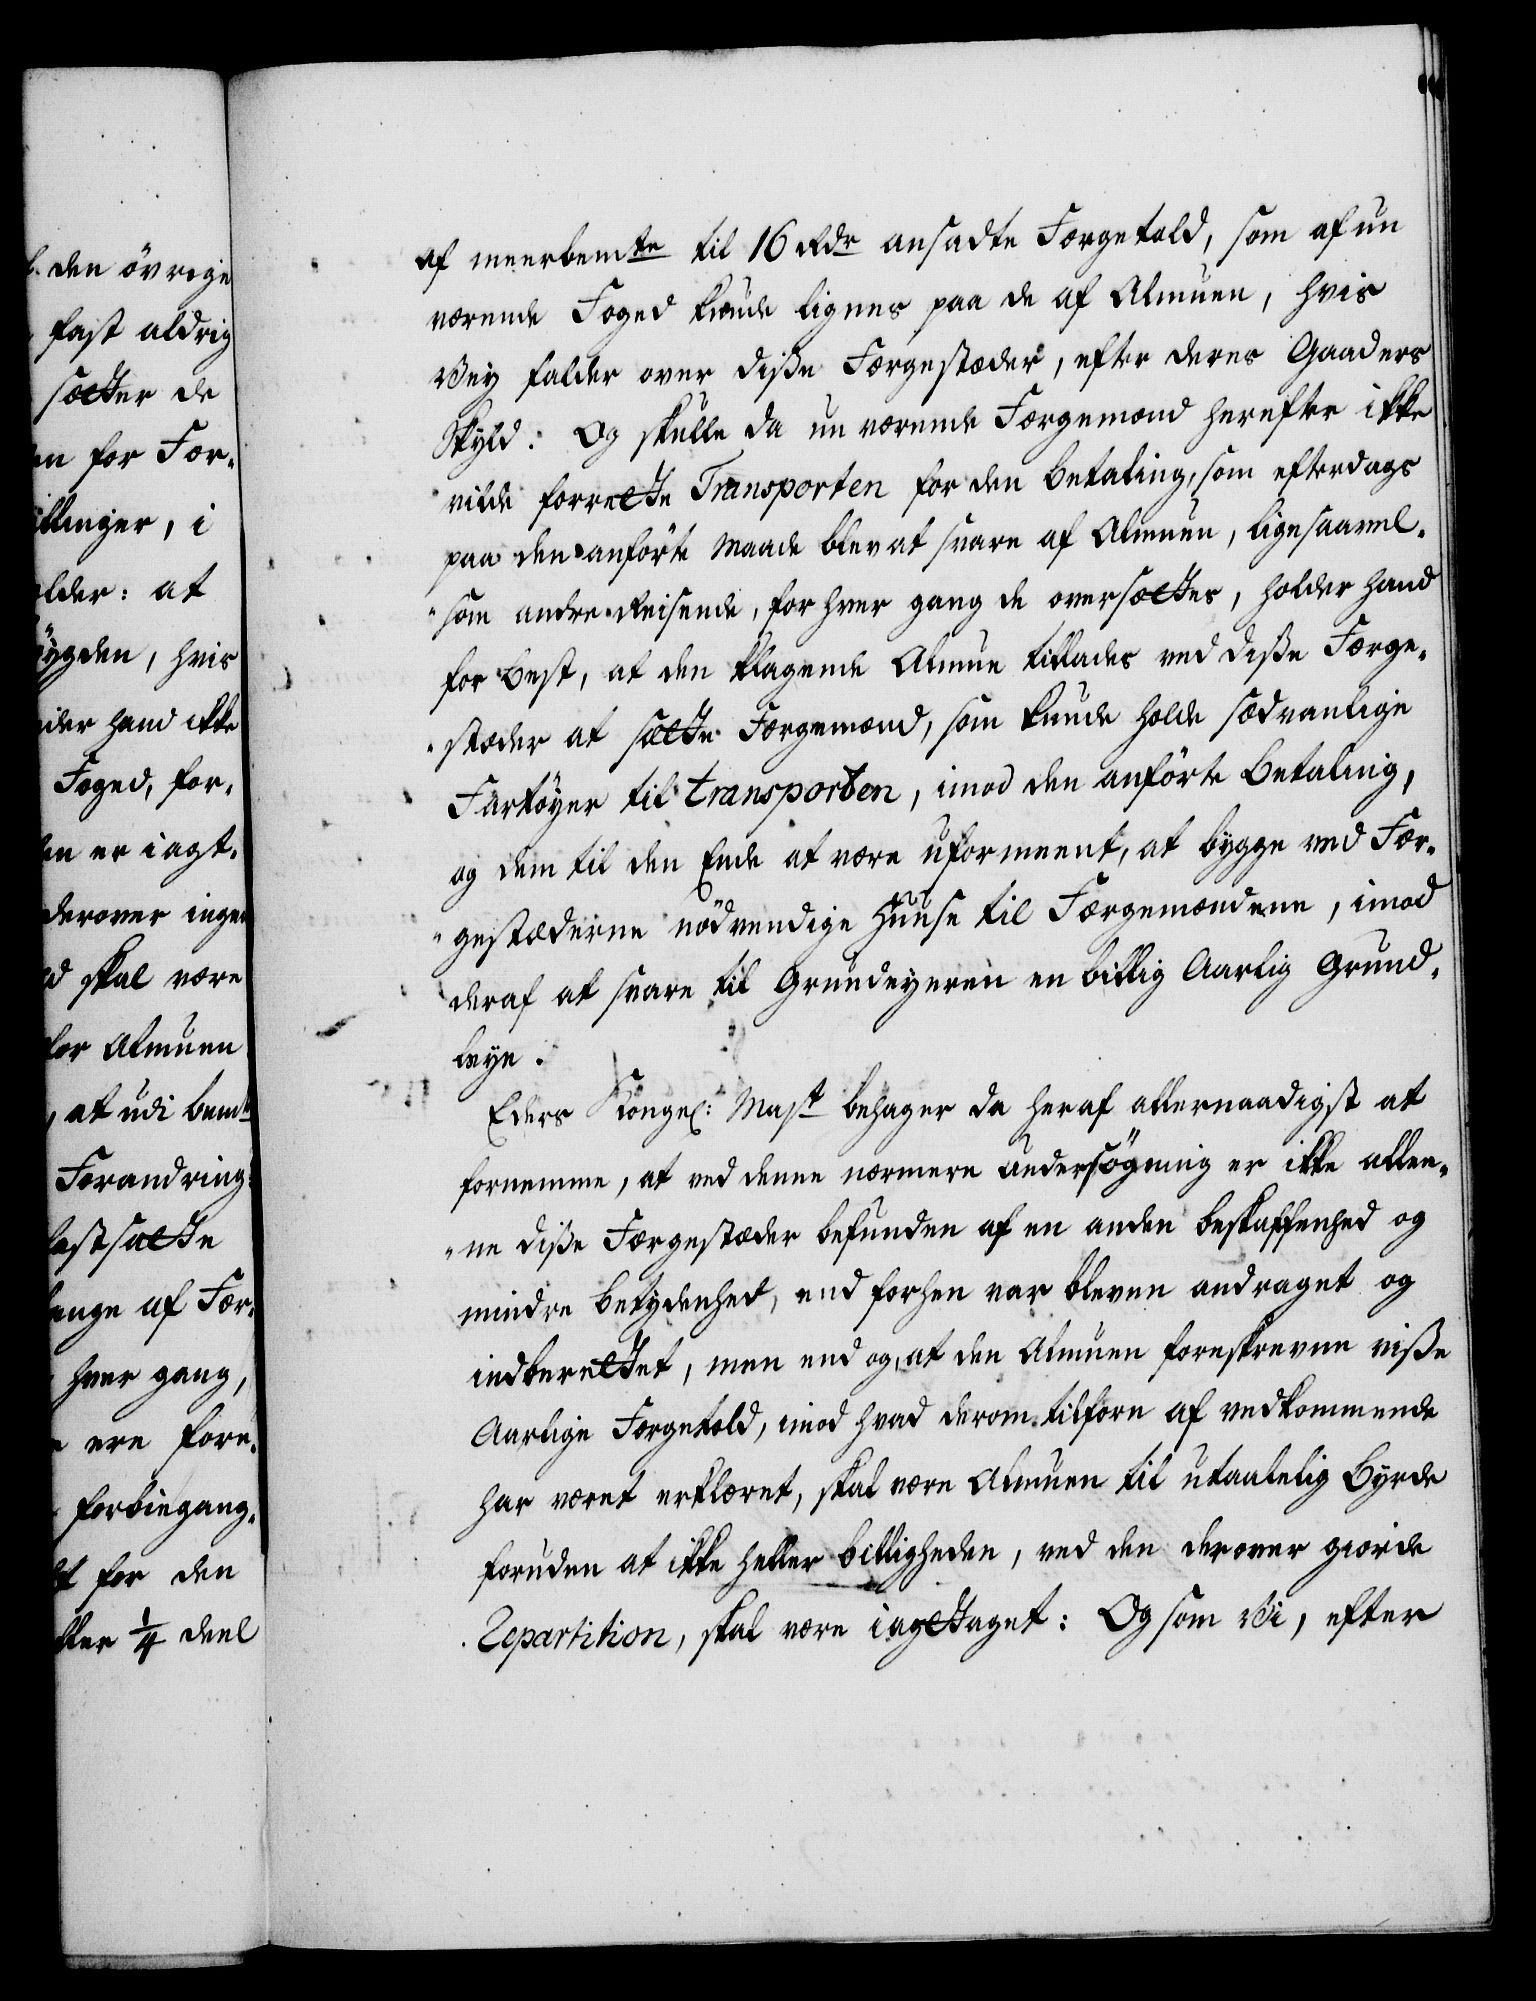 l. den övrige
fast aldrig
sætter de
en for Fær-
illinger, i
older: at
öygden, hvis
nder hand ikke
Foged, for-
en er iagt-
derover ingen
d skal være
for Almuen
, at udi bemte
Forandring
fastsætte
længe af Fær-
hver gang,
ere fore-
forbiegang-
t for den
eller 1/4 deel
af meerbemte til 16 Rdr ansadte Færgetold, som af nu
værende Foged kunde lignes paa de af Almuen, hvis
Vey falder over disse Færgestæder, efter deres Gaarders
Skyld: Og skulle da nu værende Færgemænd herefter ikke
vilde forrette Transporten for den betaling, som efterdags
paa den anförte Maade blev at svare af Almuen, ligesaavel-
som andre Reisende, for hver gang de oversættes, holder hand
for best, at den klagende Almue tillades ved disse Færge-
stæder at sætte Færgemænd, som kunde holde sædvanlige
Fartöyer til transporten, imod den anförte betaling,
og dem til den Ende at være uformeent, at bygge ved Fær-
gestæderne nödvendige Huuse til Færgemændene, imod
deraf at svare til Grundeyeren en billig Aarlig Grund-
leye.
Eders Kongel: Mayst behager da heraf allernaadigst at
fornemme, at ved denne nærmere undersögning er ikke allee-
ne disse Færgestæder befunden af en anden beskaffenhed og
mindre betydenhed, end forhen var bleven andraget og
indberettet, men end og, at den Almuen foreskrevne visse
Aarlige Færgetold, imod hvad derom tilforn af vedkommende
har været erklæret, skal være Almuen til utaalelig byrde
foruden at ikke heller billigheden, ved den derover giorde
Repartition, skal være iagttaget: Og som Vi, efter